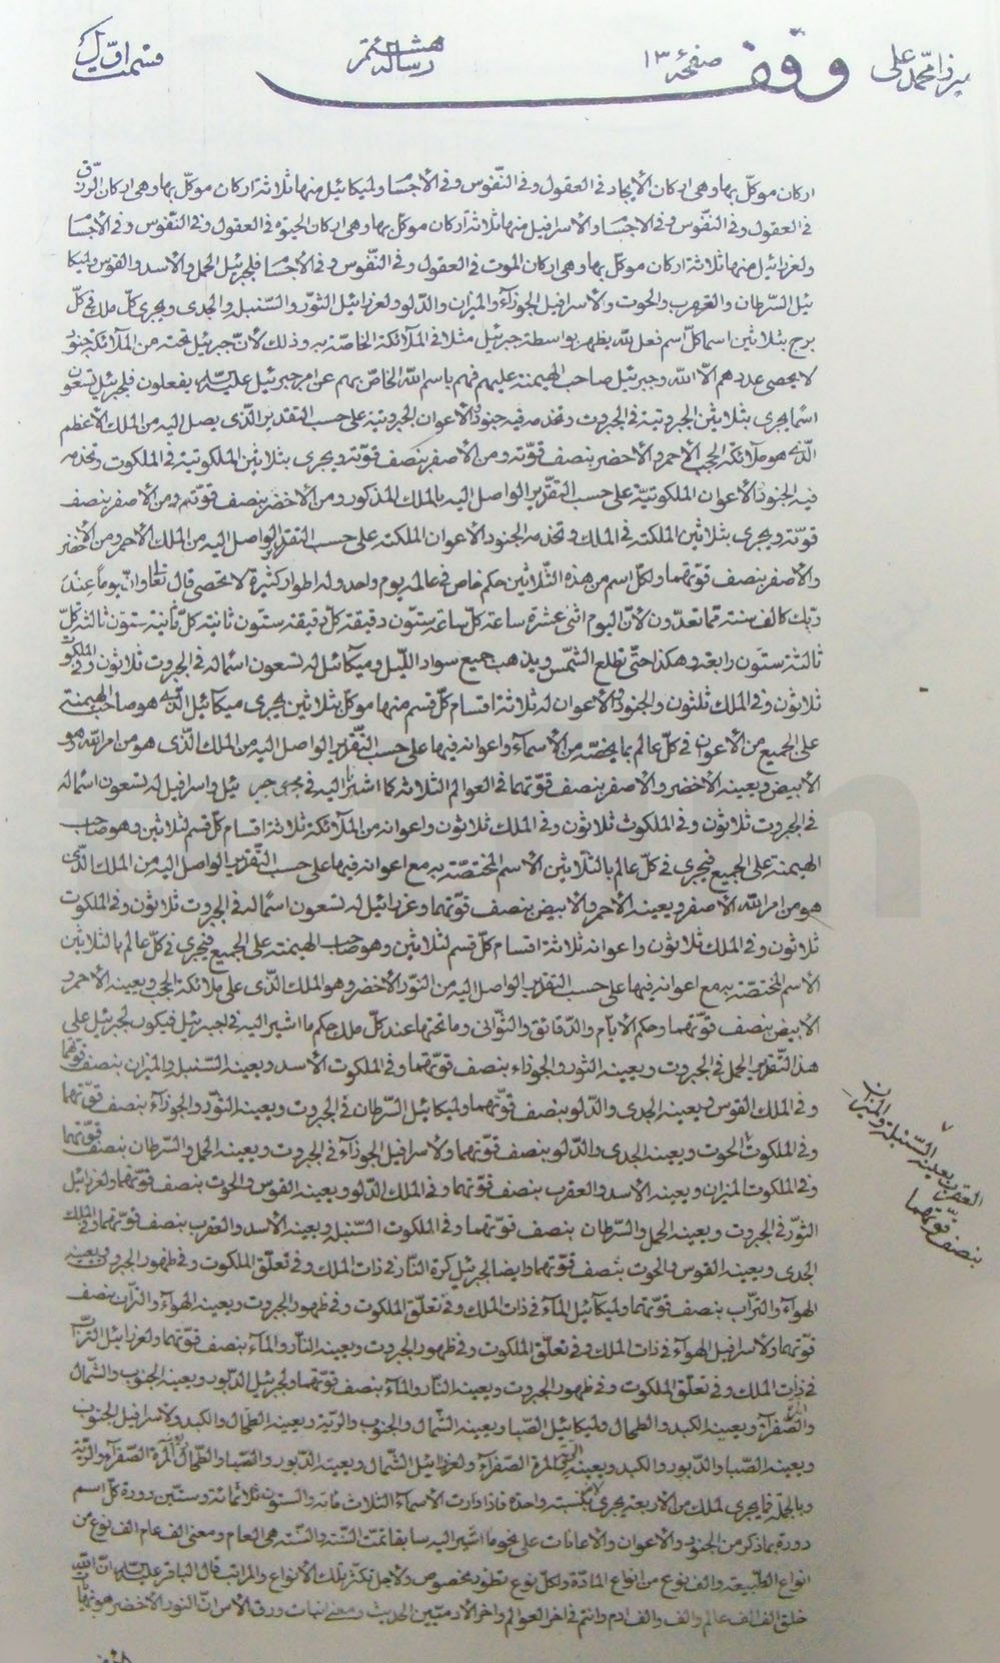 ميرزا محمد على وقف صفحۀ ١٣ رسالۀ هشتم قسمت اوّل
اركان موكّل بها وهى اركان الايجاد فى العقول وفى النّفوس وفى الاجسا ولميكائيل منها ثلاثة اركان موكّل بها وهى اركان الرّزق
فى العقول وفى النّفوس وفى الاجسا ولاسرافيل منها ثلاثة اركان موكّل بها وهى اركان الحيوة فى العقول وفى النّفوس وفى الأجسا
ولعزرائيل منها ثلاثة اركان موكّل بها وهى اركان الموت فى العقول وفى النّفوس وفى الأجسا فلجبرئيل الحمل والأسد والقوس ولميكا
ئيل السّرطان والعقرب والحوت ولاسرافيل الجوزآء والميزان والدّلو ولعزرائيل الثّور والسّنبلة والجدى ويجرى كلّ ملك فى كلّ
برج بثلاثين اسما كلّ اسم فعل لله يظهر بواسطة جبرئيل مثلا فى الملآئكة الخاصّة به وذلك لانّ جبرئيل تحته من الملآئكة جنود
لا يحصى عددهم الّا الله وجبرئيل صاحب الهيمنة عليهم فهم باسم الله الخاصّ بهم عن امر جبرئيل عليه السّلام يفعلون فلجبرئيل تسعون
اسمًا يجرى بثلاثين الجبروتية فى الجبروت وتخدمه فيه جنود الأعوان الجبروتية على حسب التقدير الّذى يصل اليه من الملك الأعظم
الّذى هو ملآئكة الحجب الاحمر والأخضر بنصف قوّته ومن الأصفر بنصف قوّته ويجرى بثلاثين الملكوتية فى الملكوت وتخدمه
فيه الجنود الأعوان الملكوتيّة على حسب التقدير الواصل اليه بالملك المذكور ومن الأخضر بنصف قوّتهم ومن الاصفر بنصف
قوّته ويجرى بثلاثين الملكية فى الملك وتخدمه الجنود الأعوان الملكته على حسب التقدير الواصل اليه من الملك الأحمر ومن الأخضر
والأصفر بنصف قوّتهما ولكل اسم من هذه الثّلاثين حكم خاص فى عالمه يوم واحد وله اطوار كثيرة لا تحصى قال تعا وانّ يومًا عِندَ
ربّك كالف سنة ممّا تعدّون لأنّ اليوم اثنى عشرة ساعة كلّ ساعة ستّون دقيقة كلّ دقيقة ستّون ثانية كلّ ثانية ستّون ثالثة كلّ
ثالثة ستّون رابعة وهكذا حتّى تطلع الشّمس ويذهب جميع سواد اللّيل وميكآئيل له تسعون اسما له فى الجبروت ثلاثون وفى الملكوت
ثلاثون وفى الملك ثلثون والجنود الأعوان له ثلاثة اقسام كلّ قسم منها موكّل بثلاثين يجرى ميكآئيل الّذى هو صاحب الهيمنة
على الجميع من الأعوان فى كلّ عالم بما يخصّه من الأسمآء واعوانه فيها على حسب التّقدير الواصل اليه من الملك الذى هو من امر الله وهو
الأبيض ويعينه الأخضر والأصفر بنصف قوّتهما فى العوالم الثلاثة كما اشير اليه فى مجرى جبر ئيل واسرافيل له تسعون اسما له
فى الجبروت ثلاثون وفى الملكوت ثلاثون وفى الملك ثلاثون واعوانه من الملآئكة ثلاثة اقسام كلّ قسم لثلاثين وهو صاحب
الهيمنة على الجميع فيجرى فى كلّ عالم بالثّلاثين الأسم المختصّة به مع اعوانه فيها على حسب التّقدير الواصل اليه من الملك الّذى
هو من امر الله الأصفر ويعينه الأحمر والأبيض بنصف قوّتهما وعزرائيل له تسعون اسمًا له فى الجبروت ثلاثون وفى الملكوت
ثلاثون وفى الملك ثلاثون واعوانه ثلاثة اقسام كلّ قسم لثلاثين وهو صاحب الهيمنة على الجميع فيجرى فى كلّ عالم بالثلاثين
الأسم المختصّة به مع اعوانه فيها على حسب التقدير الواصل اليه من النّور الأخضر وهو الملك الذّى على ملآئكة الحجب ويعينه الأحمر و
الأبيض بنصف قوّتهما وحكم الأيّام والدّقائق والثّوانى وما تحتها عند كلّ ملك حكم ما اشير اليه فى جبرئيل فيكون لجبرئيل على
هذا التّقدير الحمل فى الجبروت ويعينه الثّور والجوزاء بنصف قوّتهما وفى الملكوت الأسد ويعينه السّنبلة والميزان بنصف قوّتهما
وفى الملك القوس ويعينه الجدى والدّلو بنصف قوّتهما ولميكائيل السّرطان فى الجبروت ويعينه الثّور والجوزاء بنصف قوّتهما
وفى الملكوت الحوت ويعينه الجدى والدّلو بنصف قوّتهما ولاسرافيل الجوزآء فى الجبروت ويعينه الحمل والسّرطان بنصف قوّتهما
وفى الملكوت الميزان ويعينه الأسد والعقرب بنصف قوّتهما وفى الملك الدّلو ويعينه القوس والحوت بنصف قوّتهما ولعزرائيل
الثّور فى الجبروت ويعينه الحمل والسّرطان بنصف قوّتهما وفى الملكوت السّنبلة ويعينه الأسد والعقرب بنصف قوّتهما وفى الملك
الجدى ويعينه القوس والحوت بنصف قوّتهما وايضا لجبرئيل كرة النّار فى ذات الملك وفى تعلّق الملكوت وفى ظهور الجبروت ويعينه
الهوآء والتّراب بنصف قوّتهما ولميكآئيل المآء فى ذات الملك وفى تعلّق الملكوت وفى ظهور الجبروت ويعينه الهوآء والتّراب بنصف
قوّتهما ولاسرافيل الهوآء فى ذات الملك وفى تعلّق الملكوت وفى ظهور الجبروت ويعينه النّار والمآء بنصف قوّتهما ولعزرائيل التّراب
فى ذات الملك وفى تعلّق الملكوت وفى ظهور الجبروت ويعينه النّار والمآء بنصف قوّتهما ولجبرئيل الدّبور ويعينه الجنوب والشّمال
والصّفرآء ويعينه الكبد والطحال ولميكائيل الصّبا ويعينه الشّمال والجنوب والرّية ويعينه الطّحال والكبد ولاسرافيل الجنوب
ويعينه الصّبا والدّبور والكبد ويعينه المرة الصّفرآء ولعزرائيل الشّمال ويعينه الدّبور والصّبا والطّحال المرة الصّفرآء والرّية
وبالجملة فما يجرى لملك من الأربعة يجرى بنسبته واحدة فاذا دارت الأسمآء الثلاث مأئة والستون ثلاثمائة وستّين دورة كلّ اسم
دورة بما ذكر من الجنود والأعوان والأعانات على نحو ما اشير اليه سابقا تمّت السّنة والسّنة هى العام ومعنى الف عام الف نوع من
انواع الطّبيعة والف نوع من انواع المادّة ولكلّ نوع تطوّر مخصوص ولأجل تكثّر تلك الأنواع والمراتب قال الباقر عليه السّلم انّ الله
خلق الف الف عالم والف والف ادم وانتم فى اخر العوالم واخر الادميّين الحديث ومعنى انبات ورق الاس انّ النور الأخضر هو
العقرب ويعينه السّنبلة والميزان
بنصف قوّتهما